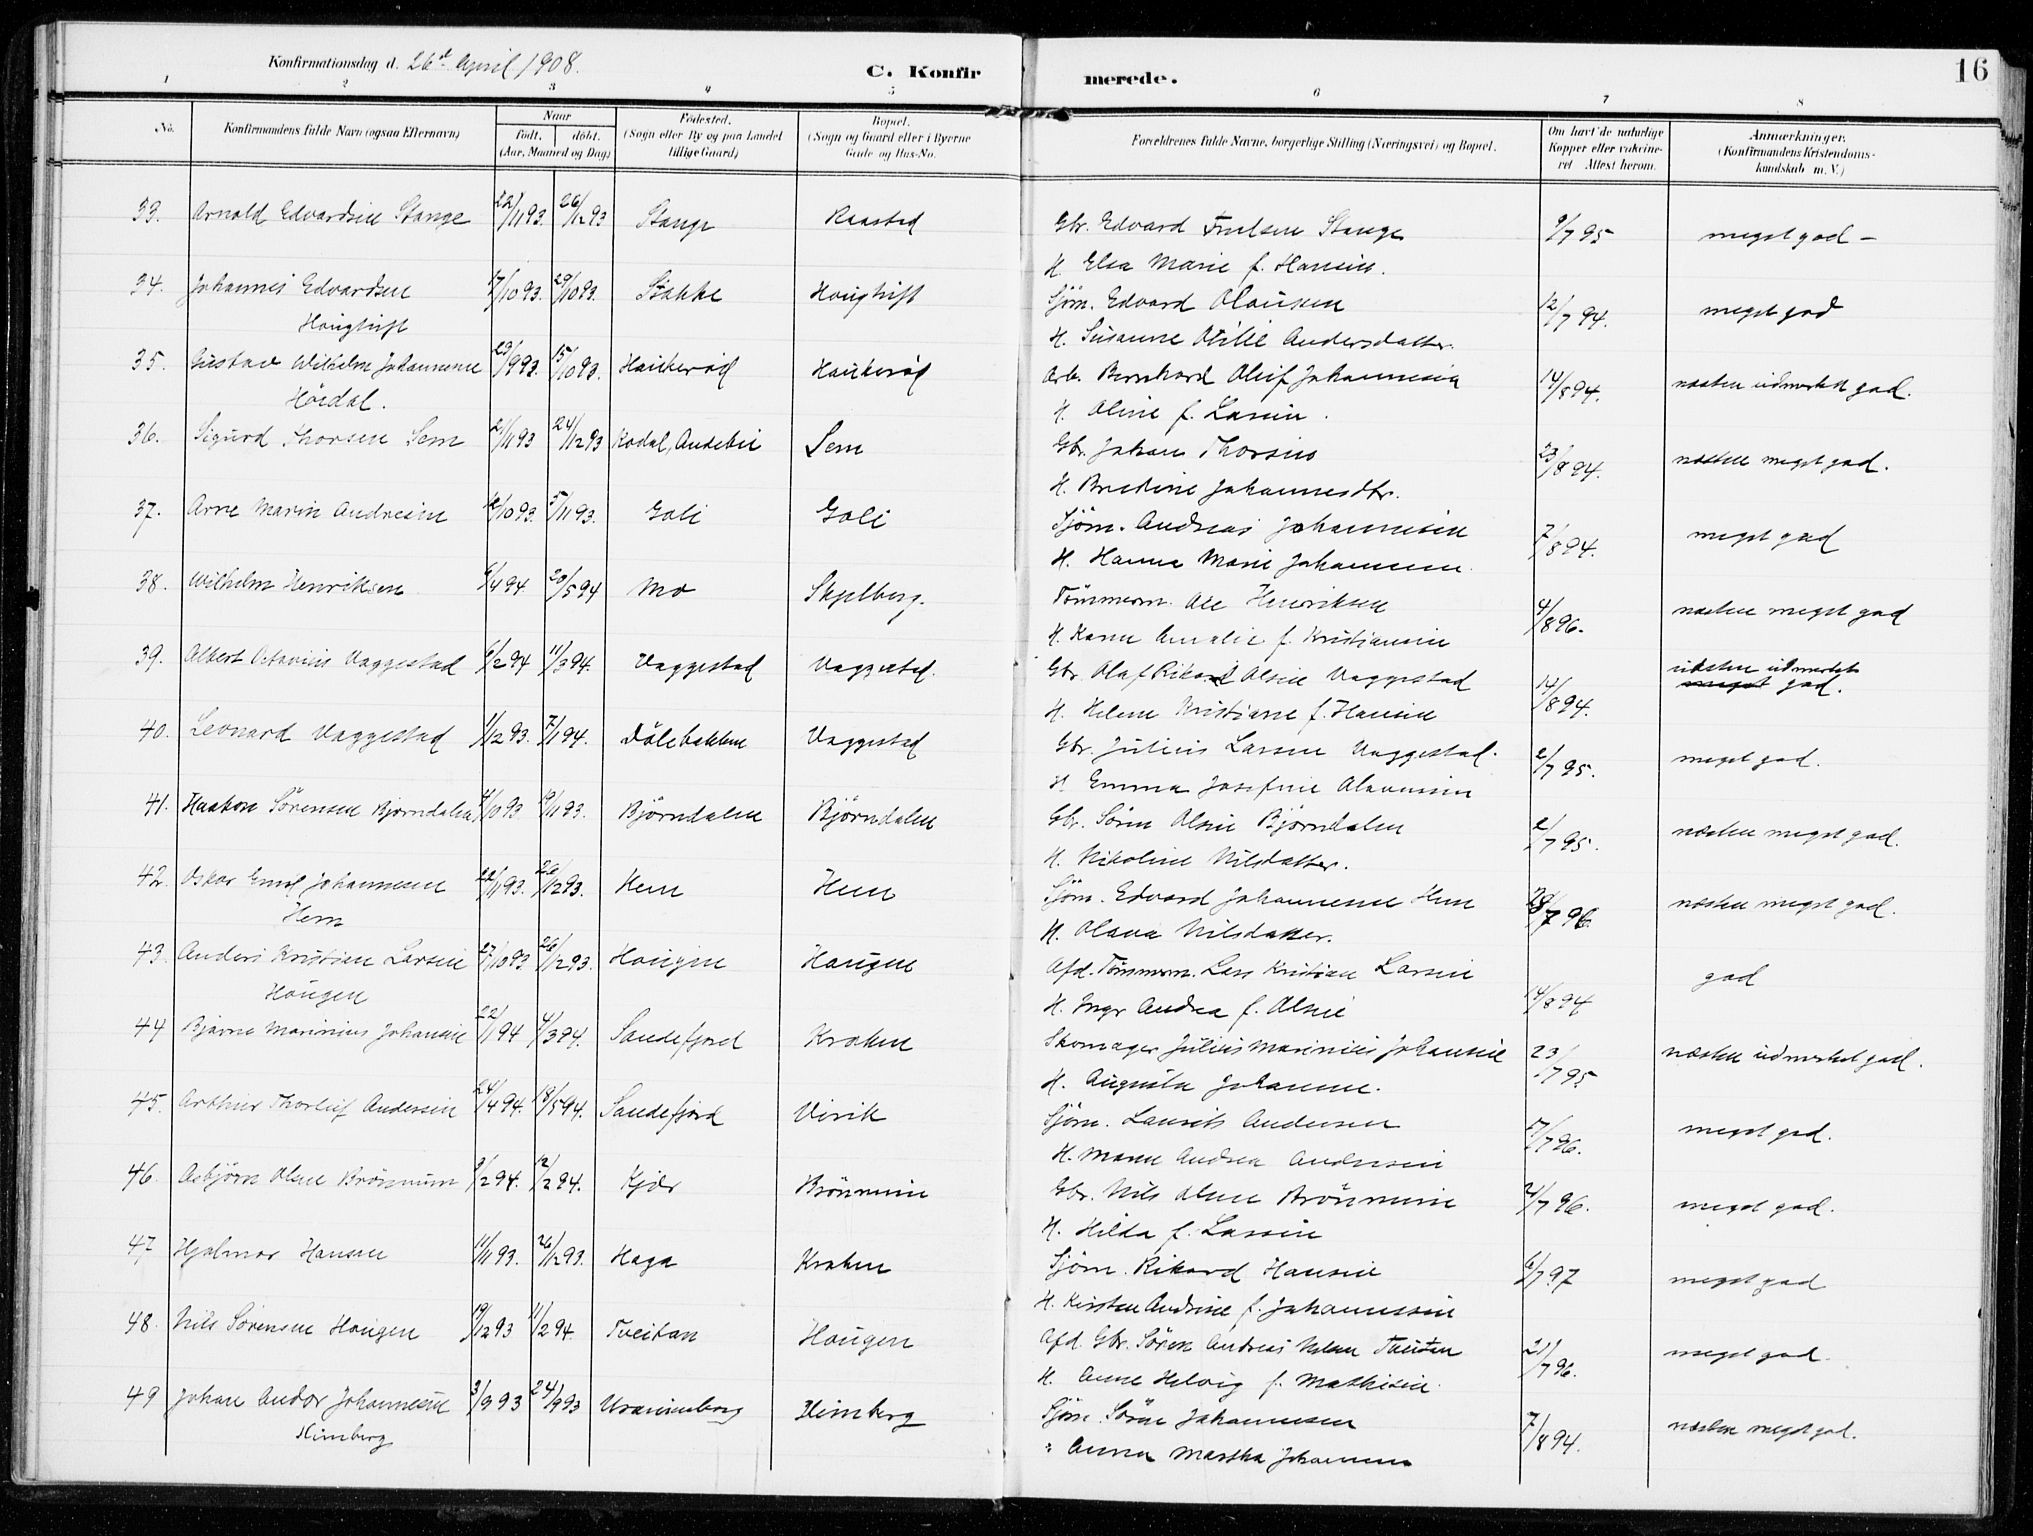 Konfirmationsdag d. 26de April 1908.
C. Konfirmerede.
16
1 2 3 4 5 6 7 8
No.
Konfirmandens fulde Navn (ogsaa Efternavn)
Naar
født. døbt.
(Aar, Maaned og Dag)
Fødested.
(Sogn eller By og paa Landet tillige Gaard)
Bopæl.
(Sogn og Gaard eller i Byerne Gade og Hus-No.
Forældrenes fulde Navne, borgerlige Stilling (Næringsvei) og Bopæl.
Om havt de naturlige Kopper eller vakcineret Attest herom.
Anmærkninger.
(Konfirmandens Kristendomskundskab m. V.)
33. Arnold Edvardsen Stange 22/11 93. 26/12 93 Stange Raastad Gbr. Edvard Stange 9/7 95 meget god –
H. Elea Marie f. Hansen.
34. Johannes Edvardsen 17/10 93. 29/10 93. Stokke Hougtuft Sjøm. Edvard Olausen 12/7 94. meget god
Hougtuft H. Susanne Otilie Andersdatter.
35. Gustav Wilhelm Johannesen 29/9 93. 15/10 93. Haukerød Haukerød Arb. Bernhard Oluf Johannesen 14/8 94. næsten udmerket god.
Høidal. H. Oline f. Larsen.
36. Sigurd Thorsen Sem 21/11 93 24/12 93 Kodal, Andebu Sem Gbr. Johan Thorsen 23/8 94. næsten meget god.
H. Bredine Johannesdtr.
37. Arne Marin Andresen 12/10 93. 5/11 93. Goli Goli Sjøm. Andreas Johannesen 7/8 94. meget god
H. Hanna Marie Johannesen.
38. Wilhelm Henriksen 6/4 94. 20/5 94 Mo Skjelberg. Tømmerm. Ole Henriksen 4/8 96. næsten meget god
H. Karen Amalie f. Kristiansen
39. Albert Octavius Vaggestad 6/2 94 11/3 94. Vaggestad Vaggestad. Gbr. Olaf Rikard Olsen Vaggestad 14/8 94. næsten udmerket god.
H. Helene Kristiane f. Hansen
40. Leonard Vaggestad 1/12 93. 7/1 94. Dølebakken Vaggestad Gbr. Julius Larsen Vaggestad. 2/7 95. meget god.
H. Emma Josefine Olavesen
41. Haakon Sørensen Bjørndalen 4/10 93. 19/11 93. Bjørndalen Bjørndalen Gbr. Søren Olsen Bjørndalen 2/7 95. næsten meget god.
H. Nikoline Nilsdatter.
42. Oskar Emil Johannesen 22/11 93. 26/12 93. Hem Hem Sjøm. Edvard Johannesen Hem 28/7 96. næsten meget god.
Hem H. Olava Nilsdatter.
43. Anders Kristian Larsen 27/10 93 26/12 93. Hougen Haugen Afd. Tømmerm. Lars Kristian Larsen 14/8 94 god
Hougen H. Inger Andrea f. Olsen
44 Bjarne Marinius Johansen 22/1 94 4/3 94. Sandefjord Kraken Skomager Julius Marinius Johansen 23/7 95 næsten udmerket god.
H. Augusta Johannesen.
45. Arthur Thorleif Andersen 24/4 94. 13/5 94. Sandefjord Virik Sjøm. Laurits Andersen 17/7 96. meget god.
H. Maren Andrea Andersen
46. Asbjørn Olsen Brønnum 3/2 94. 12/2 94. Kjær Brønnum Gbr. Nils Olsen Brønnum 21/7 96. meget god.
H. Hilda f. Larsen
47 Hjalmar Hansen 11/11 93. 26/12 93. Haga Kraken Sjøm. Rikard Hansen 6/7 97 meget god
H. Kirsten Andrine f. Johannessen
48. Nils Sørensen Hougen 19/12 93 11/2 94. Tveitan Hougen Afd. Gbr. Søren Andreas Nilsen Tveiten 21/7 96. meget god.
H. Anne Helvig f. Mathisen.
49 Johan Andor Johannesen 3/9 93 24/9 93 Uranienborg Himberg Sjøm. Søren Johannesen 7/8 94. næsten meget god.
Himberg " Anna Martha Johannesen